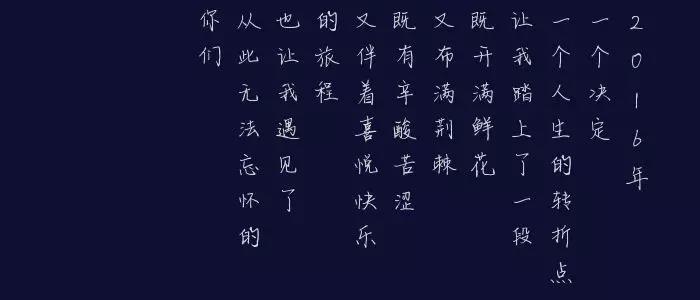 2016年
一个决定
一个人生的转折点
让我踏上了一段
既开满鲜花
又布满荆棘
既有辛酸苦涩
又伴着喜悦快乐
的旅程
也让我遇见了
从此无法忘怀的
你们